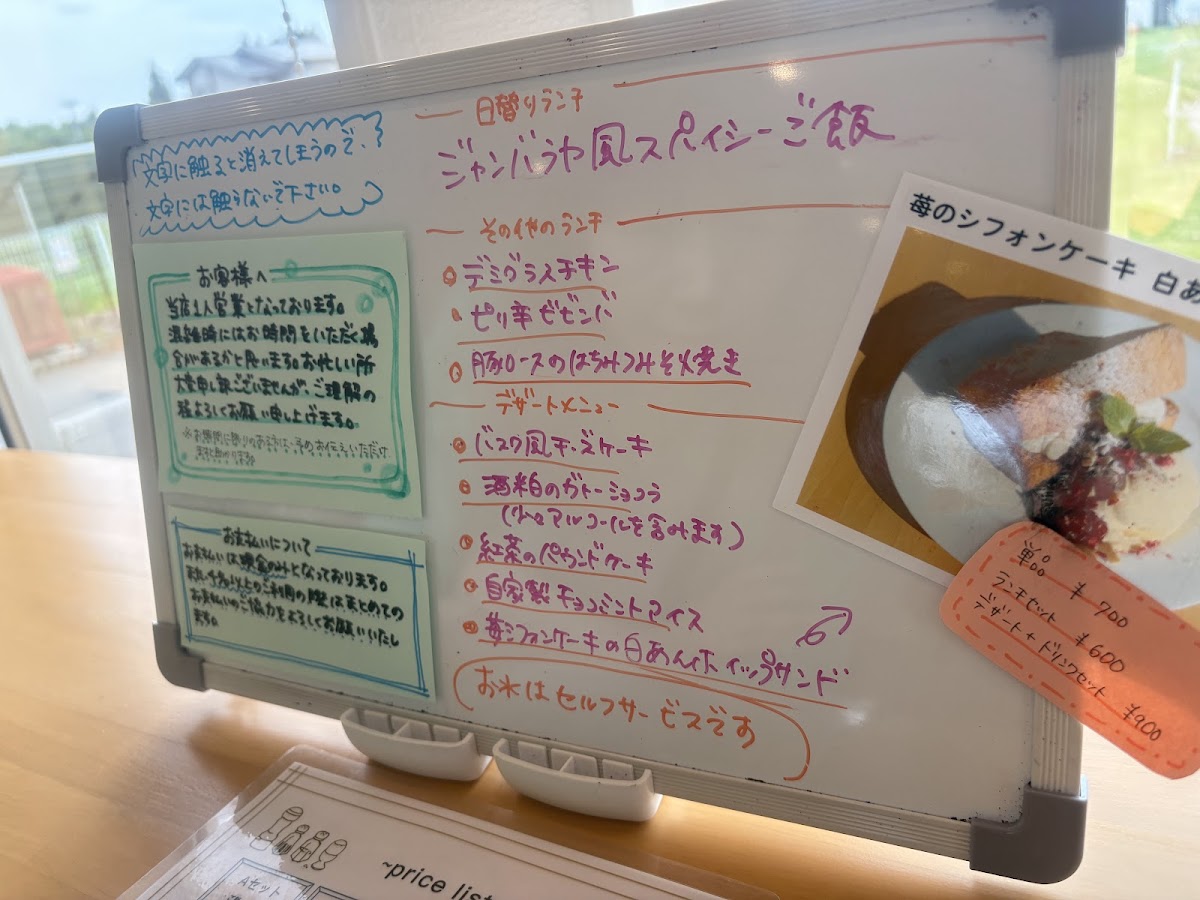 文字に触ると消えてしまうので、
文字には触らないで下さい。
お客様へ
当店1人営業となっております。
混雑時にはお時間をいただく場
合があるかと思います。お忙しい所
大変申し訳ございませんが、ご理解の
程よろしくお願い申し上げます。
お支払いについて
お支払いは現金のみとなっております。
お支払いのご協力をよろしくお願いいたし
ます。
日替りランチ
ジャンバラヤ風スパイシーご飯
その他のランチ
デミグラスチキン
ピリ辛ビビンバ
豚ロースのはちみつみそ焼き
デザートメニュー
バスク風チーズケーキ
酒粕のガトーショコラ
(少々アルコールを含みます)
紅茶のパウンドケーキ
自家製チョコミントアイス
苺シフォンケーキの白あんホイップサンド
お水はセルフサービスです
苺のシフォンケーキ 白あ
単品 ¥700
ランチセット ¥600
デザート+ドリンクセット ¥900
~price list
Aセット